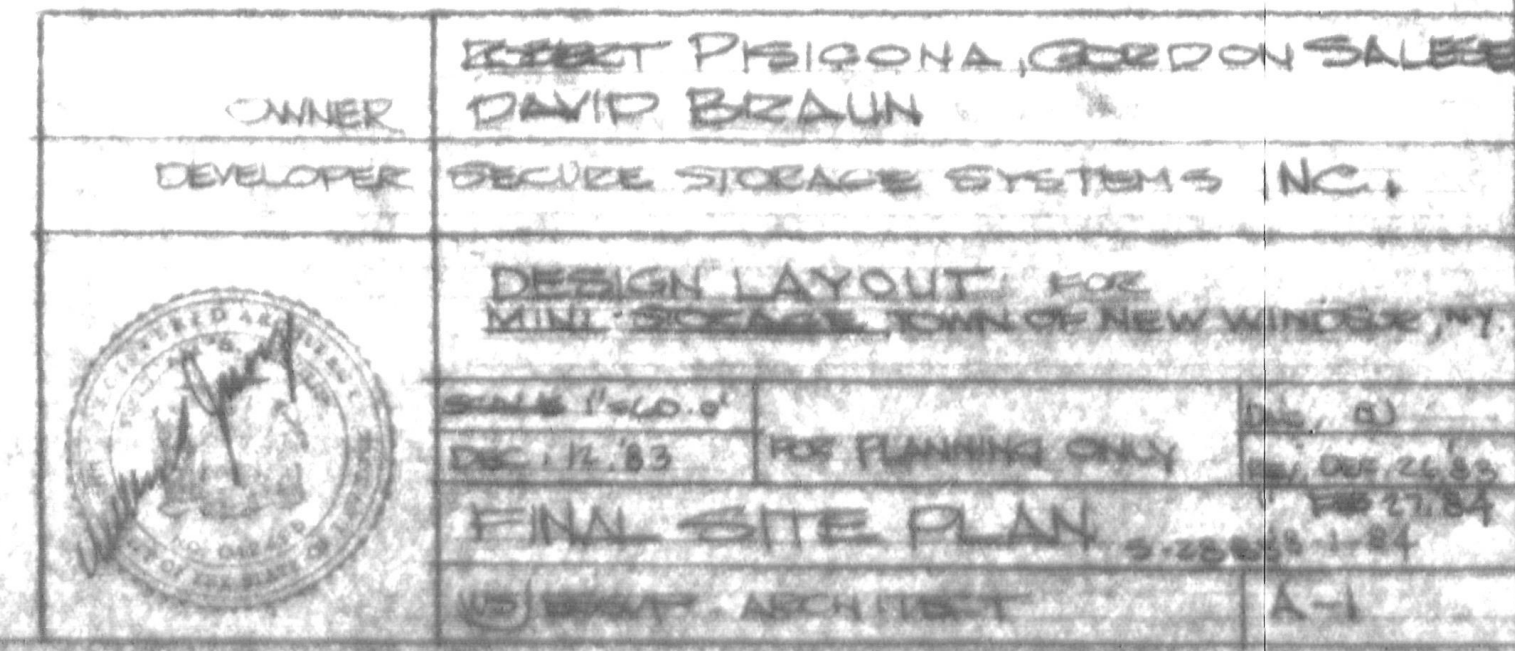 OWNER
ROBERT PISIGONA, GORDON SALESE
DAVID BRAUN
DEVELOPER
SECURE STORAGE SYSTEMS INC.
DESIGN LAYOUT FOR
MINI STORAGE, TOWN OF NEW WINDSOR, NY.
SCALE 1"=60.0'
DEC. 12. '83
FOR PLANNING ONLY
REV. DEC. 26, '83
" FEB 27. 84
FINAL SITE PLAN
ARCHITECT
A-1